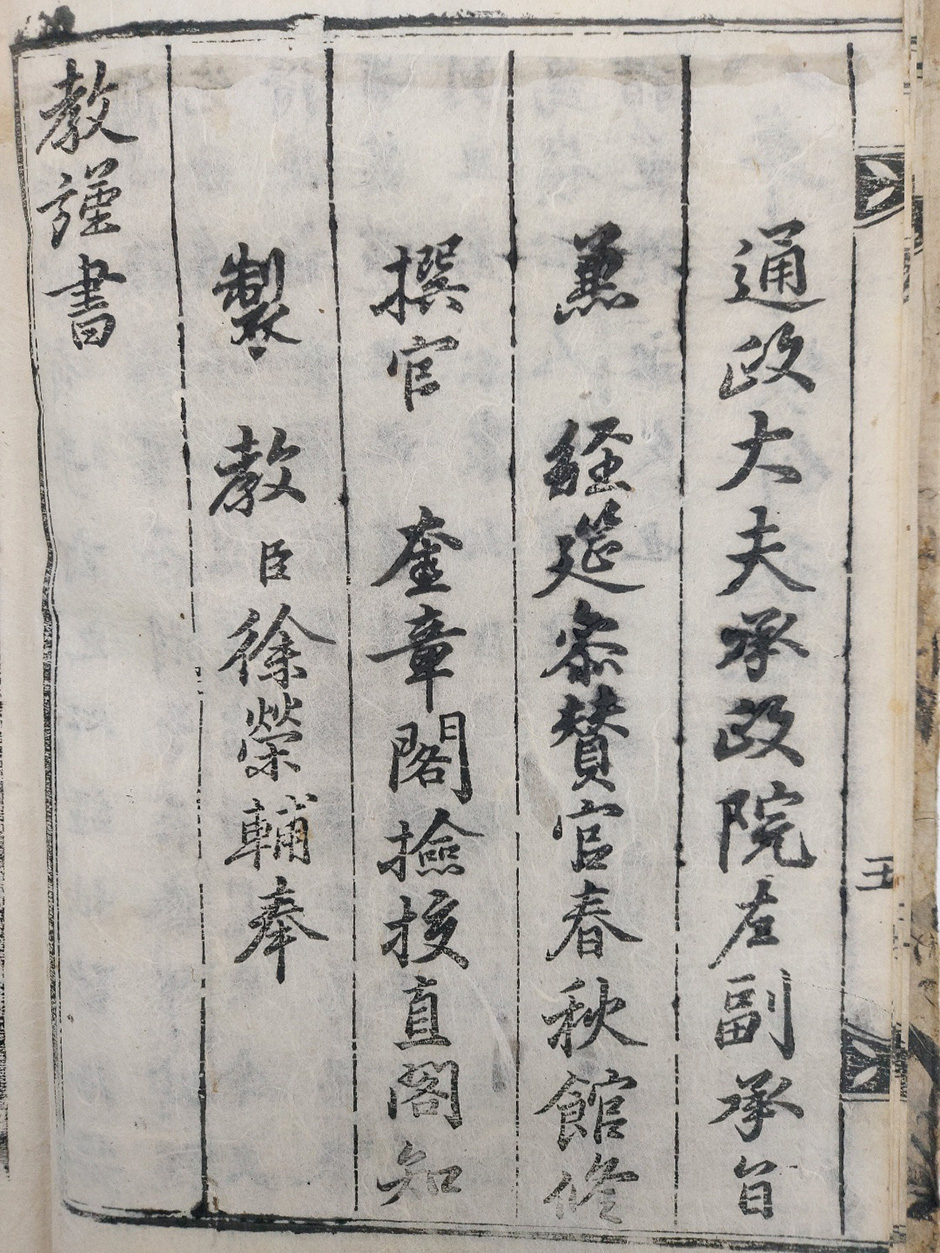 通政大夫承政院左副承旨
兼 經筵參贊官春秋館修
撰官 奎章閣檢校直閣知
製 教臣徐榮輔奉
教謹書